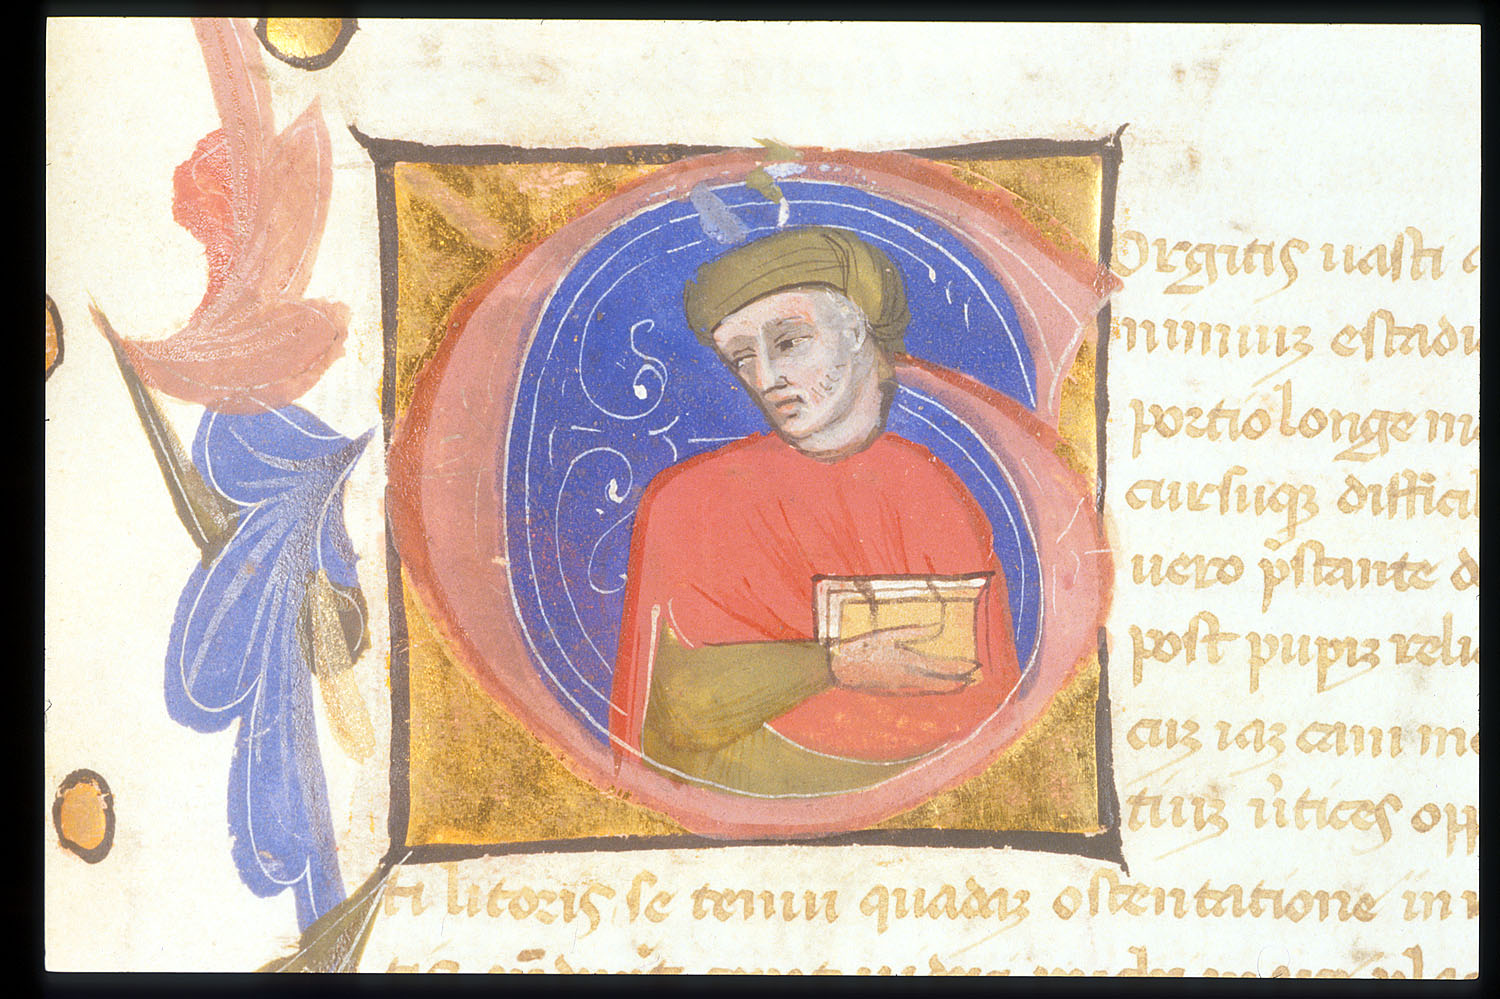 Orgitis uasti
nimiuz estadu
portio longe
cursuqz difficil
uero pstante d
post pupiz reli
cuz iaz cani
tiuz utices opp
ti litoris se tenui quadaz ostentatione in